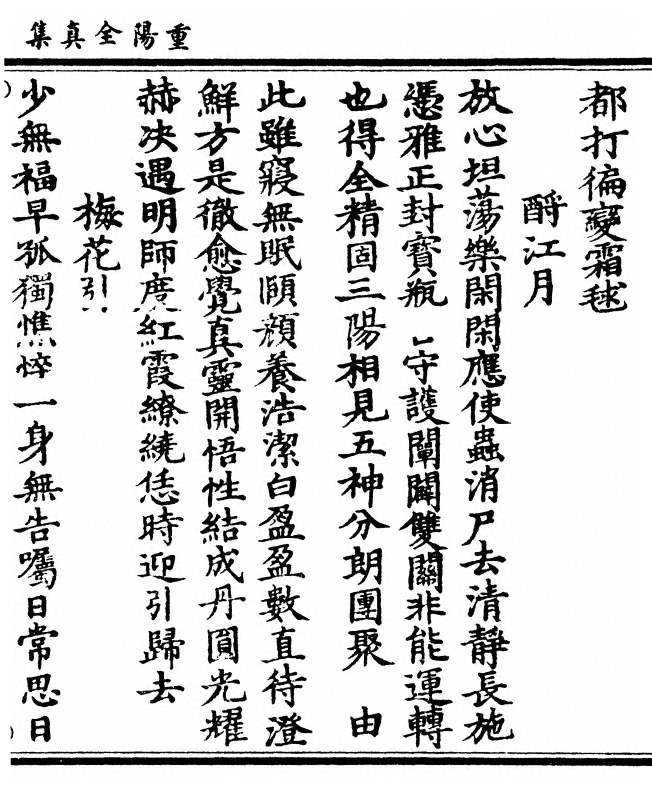 重陽全真集
都打徧變霜毬
酹江月
放心坦蕩樂閑閑應使蟲消尸去清靜長施
憑雅正封寶瓶 守護闡闢雙關非能運轉
也得全精固三陽相見五神分朗團聚 由
此雖寢無眠頤頹養浩潔白盈盈數直待澄
鮮方是徹愈覺真靈開悟性結成丹圓光耀
赫决遇明師度紅霞繚繞恁時迎引歸去
梅花引
少無福早孤獨憔悴一身無告囑日常思日